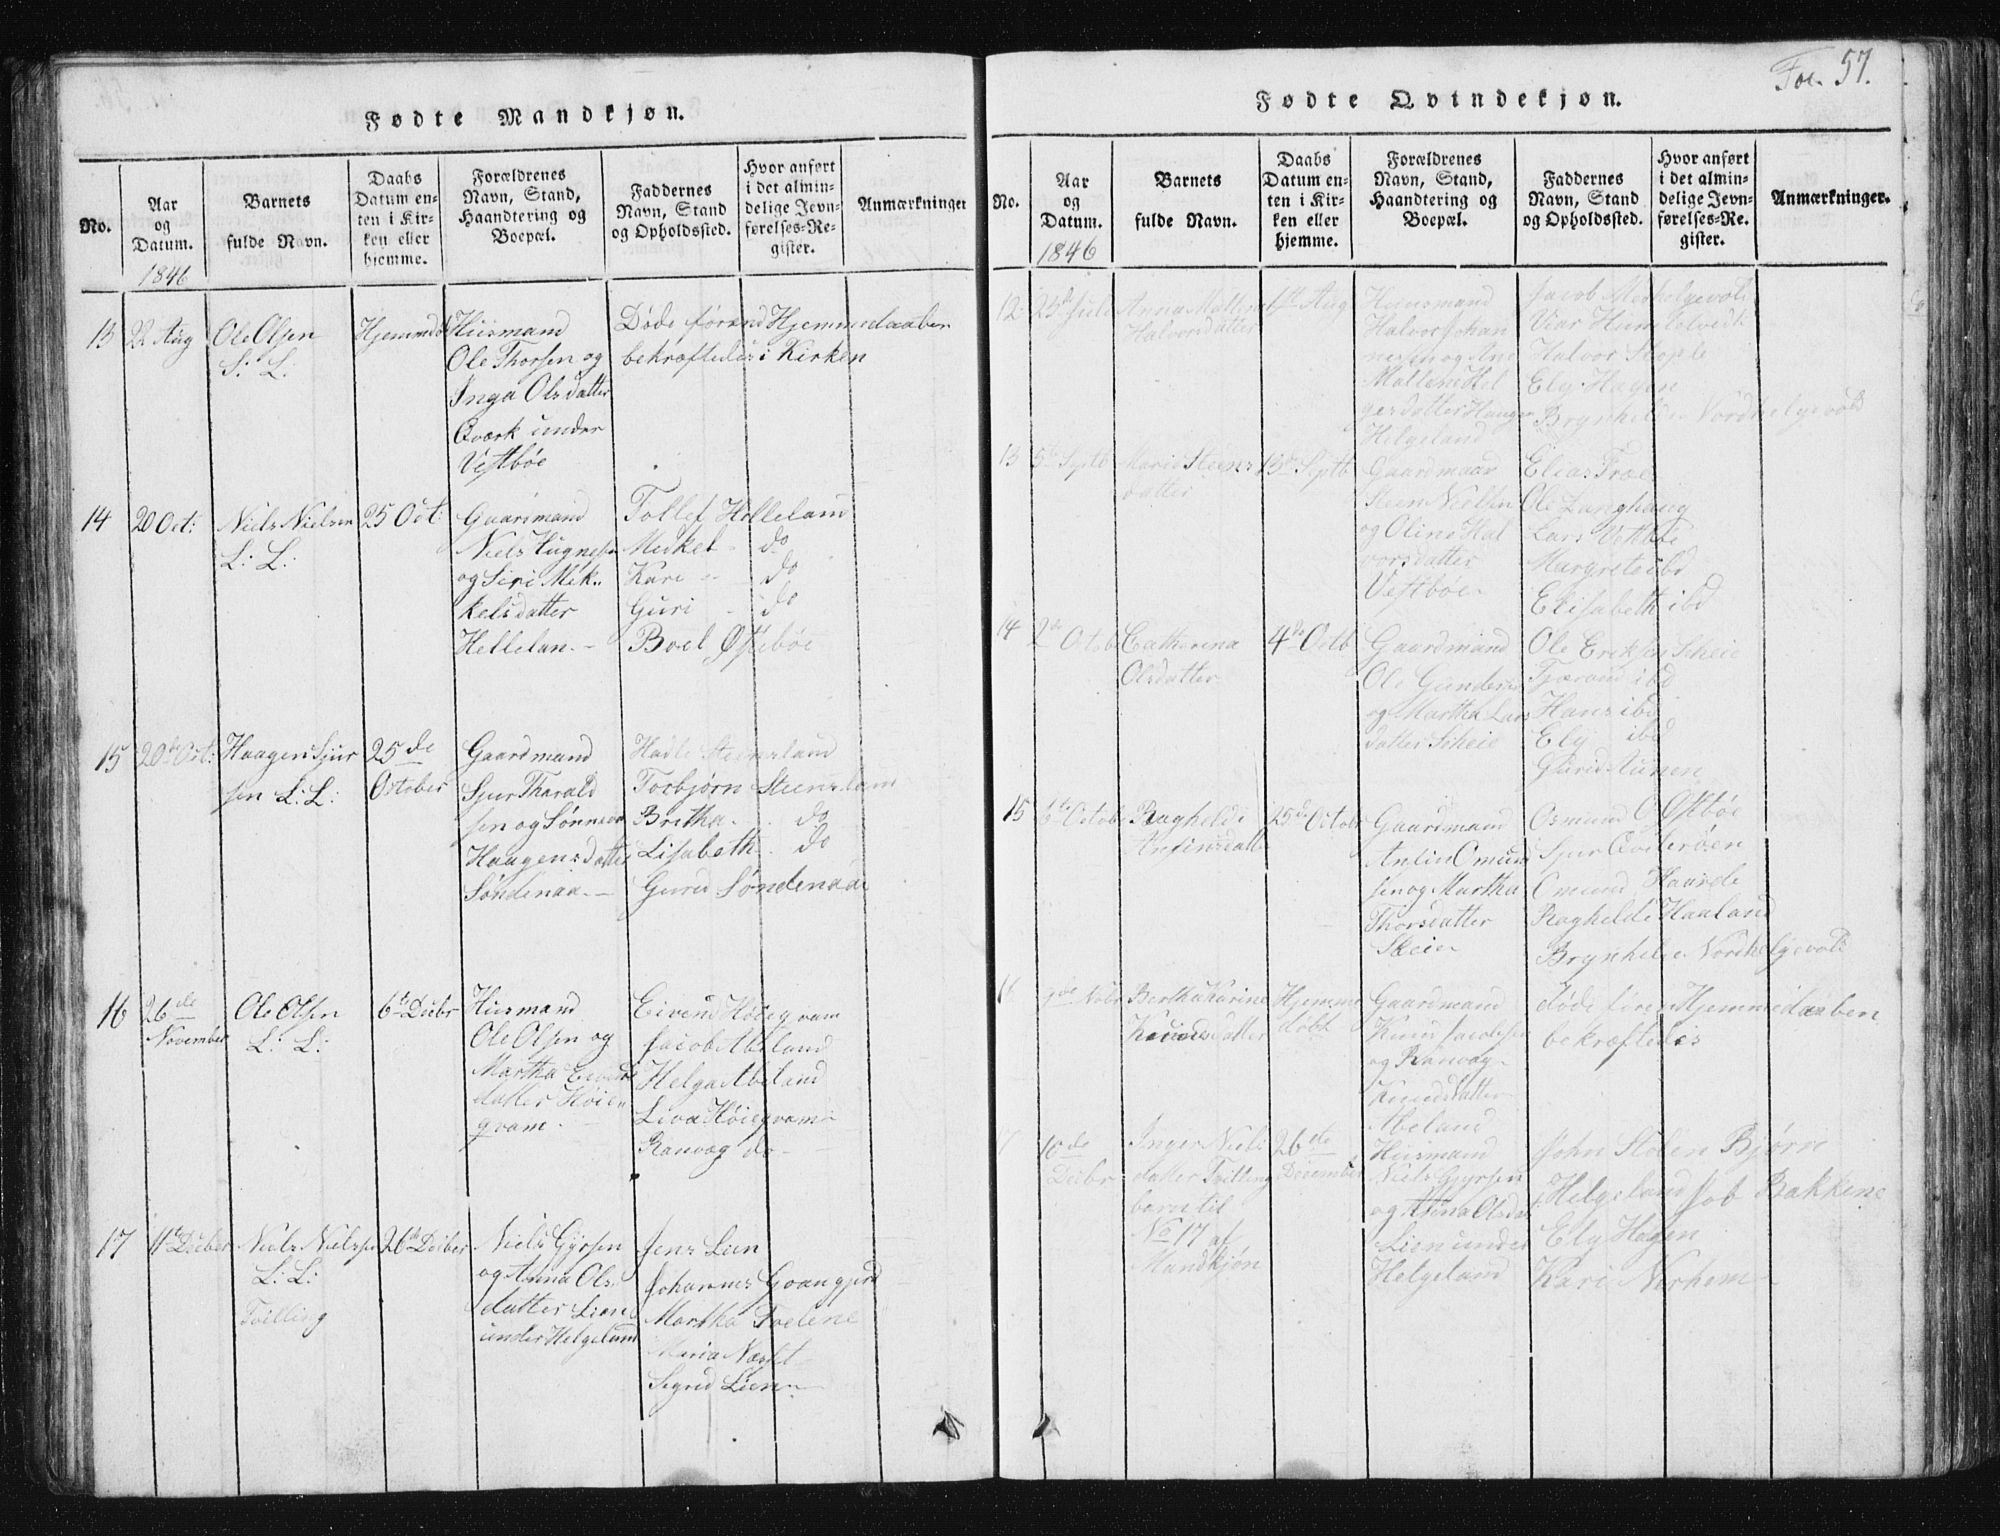 Fødte Mandkjøn.
No.
Aar og Datum.
Barnets fulde Navn.
Daabs Datum enten i Kirken eller hjemme.
Forældrenes Navn, Stand, Haandtering og Boepæl.
Faddernes Navn, Stand og Opholdssted.
Hvor anført i det almindelige Jevnførelses-Register.
Anmærkninger
1846
13
22 Aug
Ole Olsen
L: L:
Hjemmdøbt
Huusmand
Ole Thorsen og
Inga Olsdatter
Qværk under
Vestbøe
Døde førend Hjemmedaaben
bekræftedes i Kirken
14
20 Oct:
Niels Nielsen
L: L:
25 Oct:
Gaardmand
Niels
og Siri Mik..
kelsdatter
Hellelan.-
Tollef Helleland
Meckel - do
Kari - do
Guri - do
Boel Østebøe
15
20de Oct:
Haagen Sjur
sen L: L:
25 de
October
Gaardmand
Sjur Tharald
sen og
Haagensdatter
Søndenaa -
Hadle Steensland
Torbjørn Steensland
Britha - do
Lisabeth - do
Gurid Søndenaa
16
26 de
November
Ole Olsen
L: L:
6te Decbr
Husmand
Ole Olsen og
Martha Eivinds
datter Høie..
qvam -
Eivend Høiegvam
Jacob Abeland
Helga Abeland
Liva Høiegvam -
Ranvag do -
17
11te Decber
Niels Nielsen
L: L:
Tvilling
26de Decber
Niels Gyrsen
og Anna Ols
datter Lien
under Helgeland
Jens Lien
Johannes
Martha
Maria
Sigrid Lien -
Fol. 57.
Fødte Qvindekjøn.
No.
Aar og Datum.
Barnets fulde Navn.
Daabs Datum enten i Kirken eller hjemme.
Forældrenes Navn, Stand, Haandtering og Boepæl.
Faddernes Navn, Stand og Opholdssted.
Hvor anført i det almindelige Jevnførelses-Register.
Anmærkninger.
1846
12
25de Juli
Anna Malena
Halvorsdatter
Aug
Huusmand
Halvor Johan
nessen og Ane
Malene Hel
gesdatter Haugen
Helgeland
Jacob
Viar
Halvor
Ely Hagen
Brynhilde Nordhelgevold
13
5te Septb
Marie Steens
datter
13de Septb
Gaardmand
Steen
og Oline Hal
vorsdatter
Vestbøe -
Elias
Ole Langhaug
Lars Vestbøe
Margrete ibd
Elisabeth ibd
14
2de Octob
Catharina
Olsdatter
4de Octb
Gaardmand
Ole Gundersen
og Martha Lars
datter Scheie
Ole Eriksen Scheie
Tjærand ibd
Hans ibd
Ely ibd
Gurid Aunen
15
6te Octob
Raghelde
Anfinsdatt
25de Octobr
Gaardmand
Anfin Omund
sen og Martha
Thorsdatter
Skeie -
Osmund O Østbøe
Sjur
Omund Haavde
Raghelde Haaland
Brynhelde Nordhelgevold
16
9de Nobr
Bertha Karine
Knudsdatter
Hjemme
døbt
Gaardmand
Knud Jacobsen
og Ranvag
Knudsdatter
Abeland
døde førend Hjemmedaaben
bekræftedes
17
10 de
Decbr
Inger Niels
datter Tvilling
barn til
No 17 af
Mandkjøn
26 de
December
Huusmand
Niels Gyrsen
og Anna Olsdat
Lien under
Helgeland
John Stolen Bjørn
Helgeland Job Bakkene
Ely Hagen
Kari Nerhem